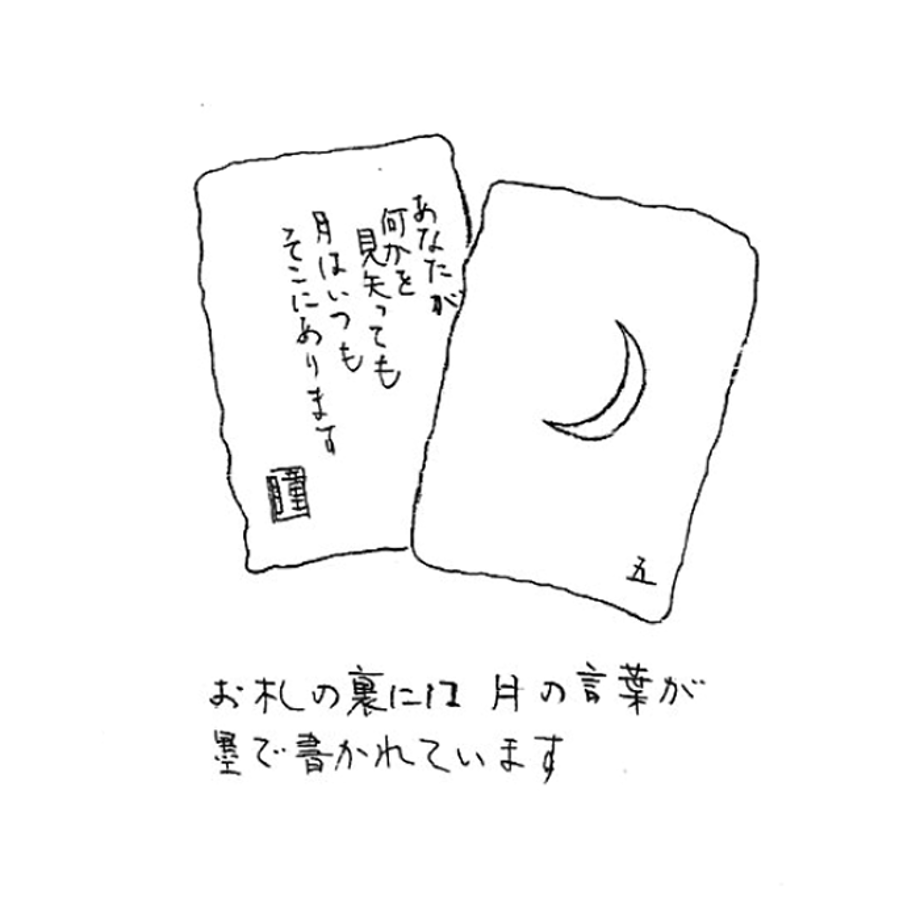 あなたが
何かを
見失っても
月はいつも
そこにあります
瞳
五
お札の裏には 月の言葉が
墨で書かれています